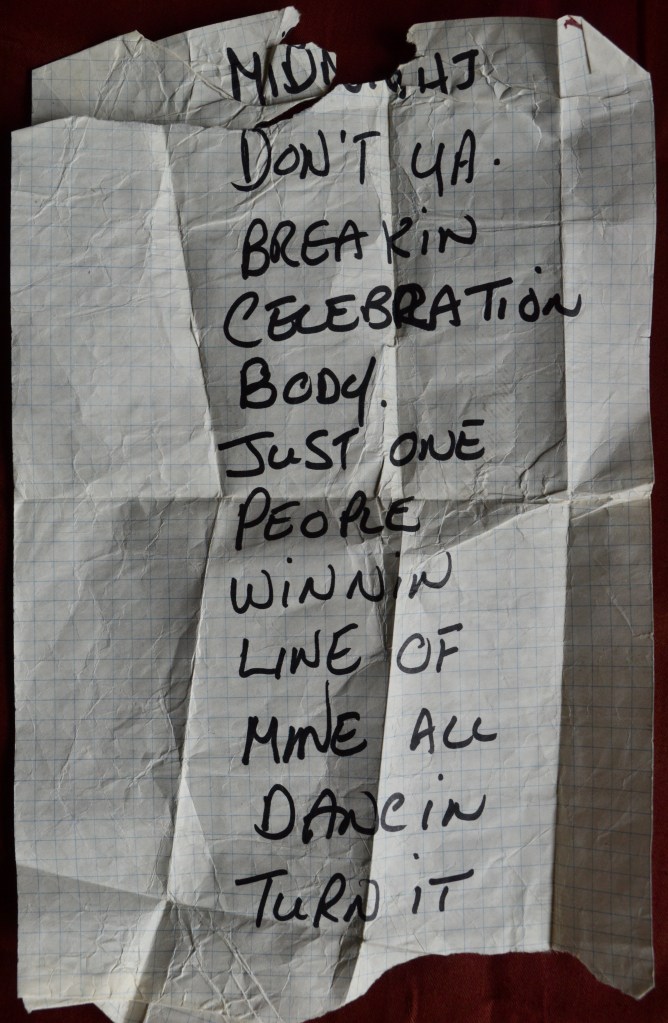 MIDNIGHT
DON'T YA.
BREAKIN
CELEBRATION
BODY.
JUST ONE
PEOPLE
WINNIN
LINE OF
MINE ALL
DANCIN
TURN IT